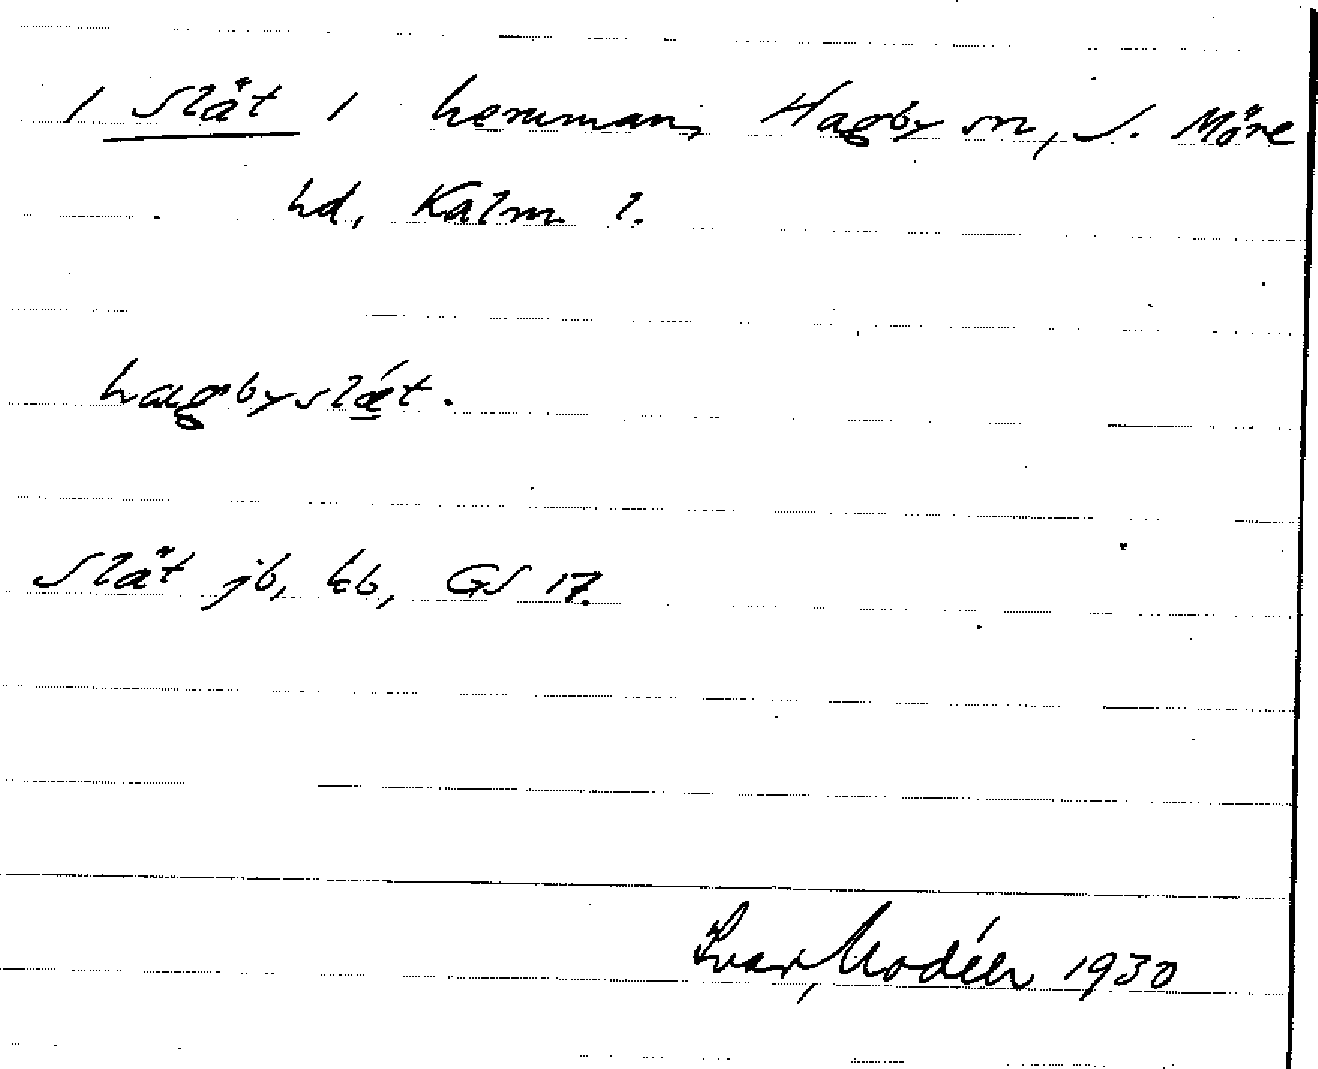 / Slåt / hemman, Hagby sn, S. Möre
hd, Kalm l.
hagbyslǻt.
Slåt jb, kb, GS 17.
Ivar Modéer 1930